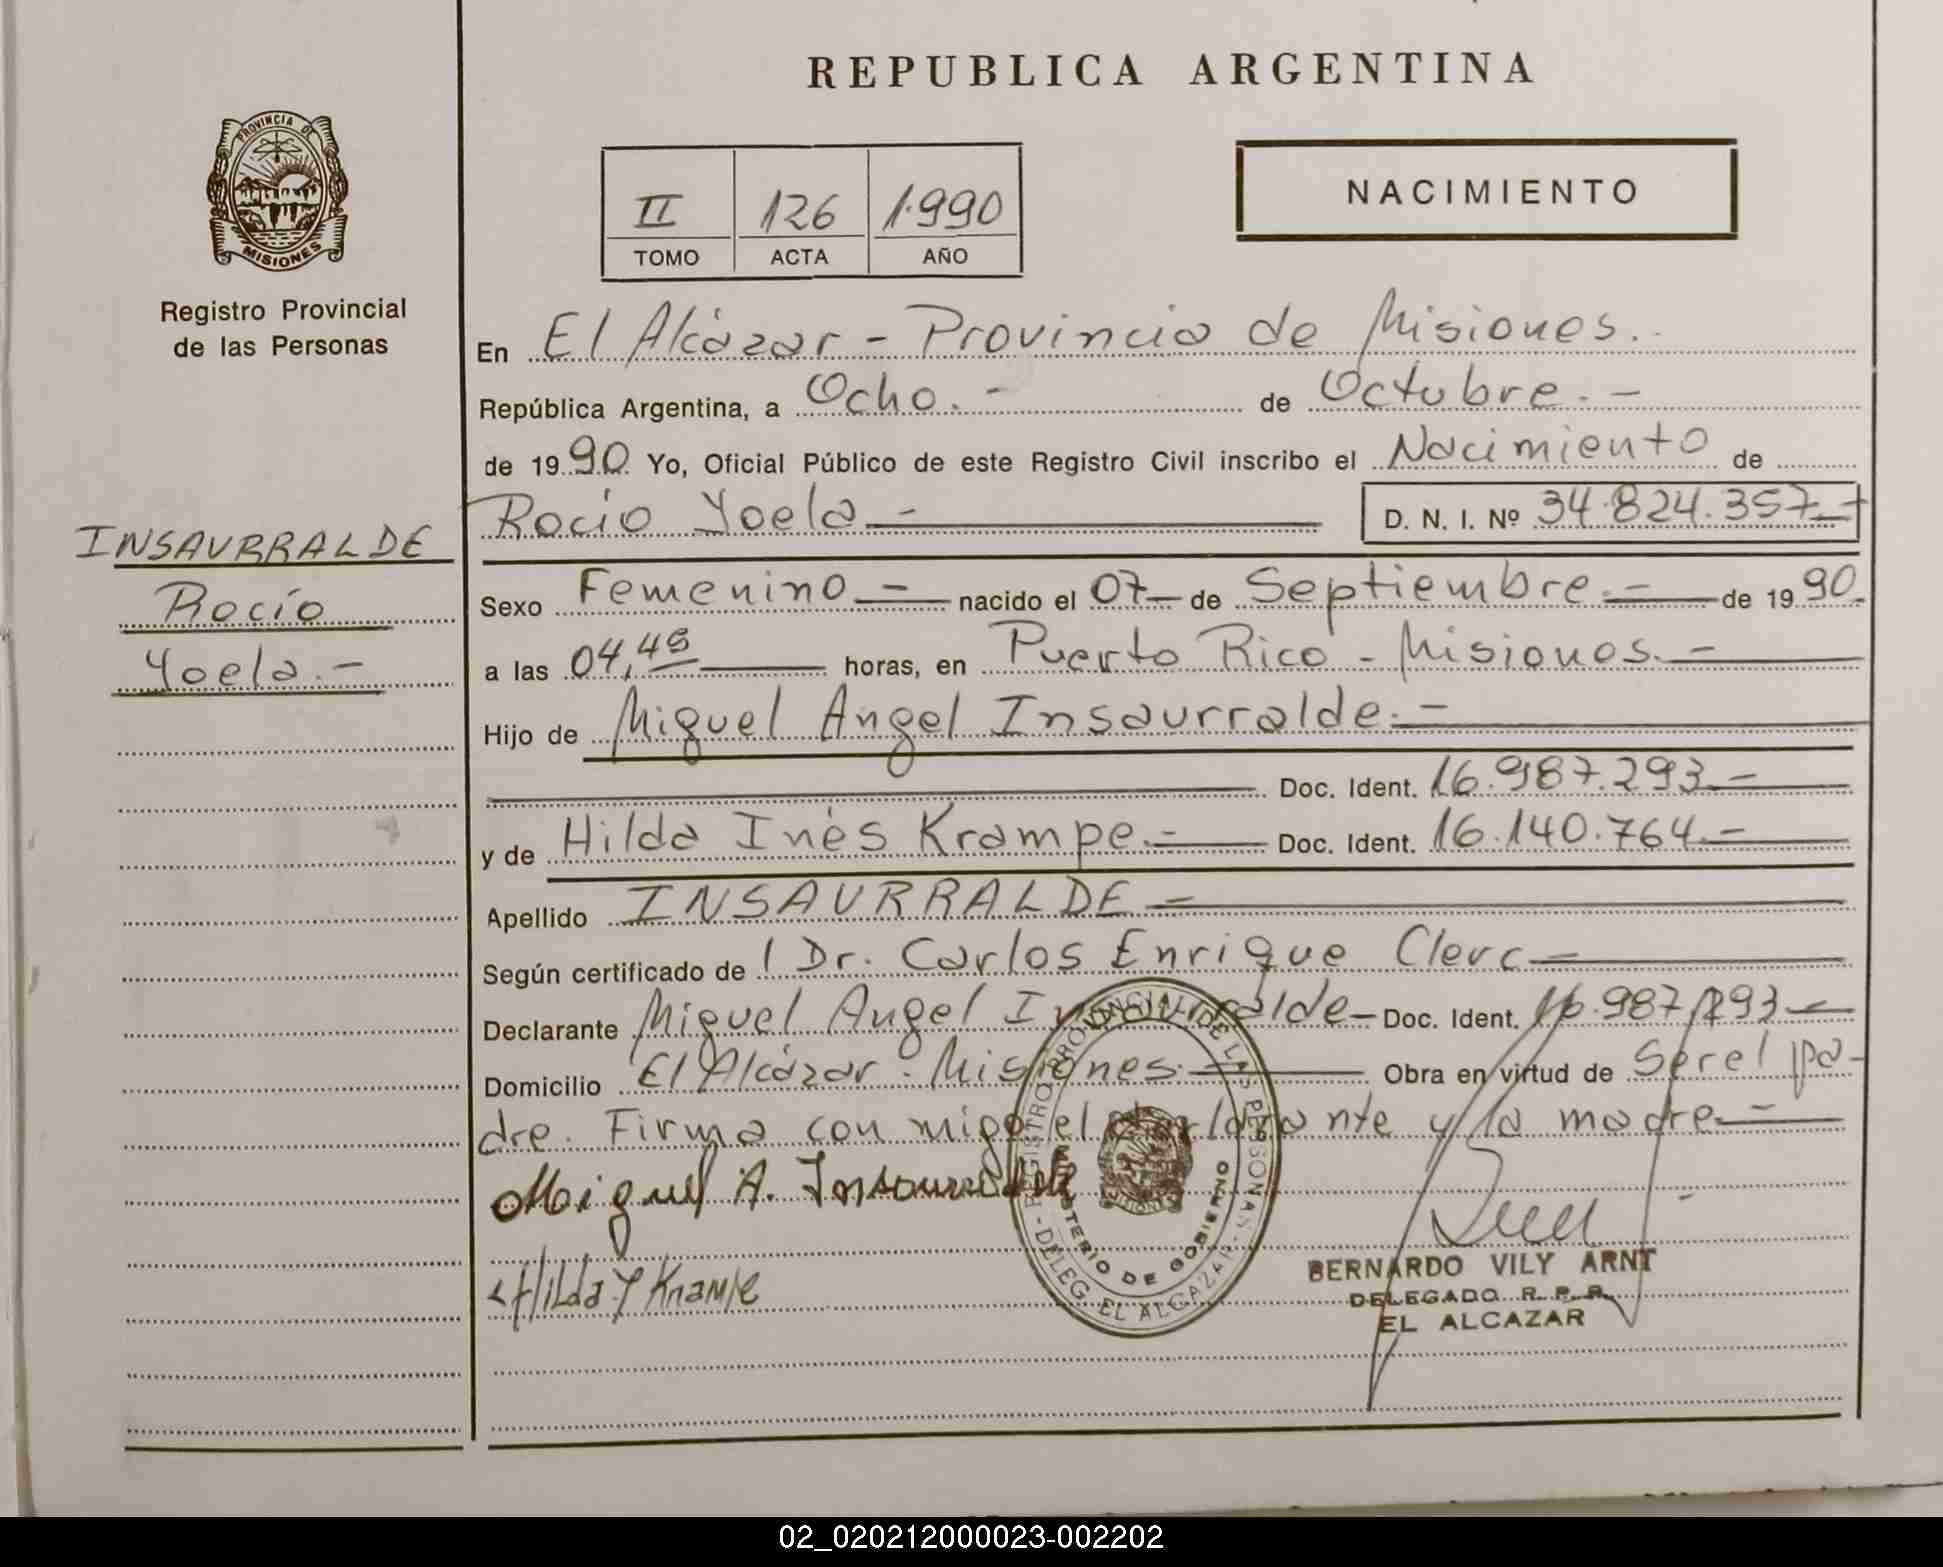 REPUBLICA ARGENTINA
PROVINCIA DE
MISIONES
Registro Provincial
de las Personas
NACIMIENTO
II 126 1.990
TOMO ACTA AÑO
En El Alcázar - Provincia de Misiones.
República Argentina, a Ocho. - de Octubre. -
de 1990 Yo, Oficial Público de este Registro Civil inscribo el Nacimiento de
Rocío Yoela - D. N. I. Nº 34.824.357
INSAURRALDE
Rocío
Yoela. -
Sexo Femenino - nacido el 07 de Septiembre. - de 1990.
a las 04,45 horas, en Puerto Rico - Misiones. -
Hijo de Miguel Angel Insaurralde. -
Doc. Ident. 16.987.293. -
y de Hilda Inés Krampe. - Doc. Ident. 16.140.764. -
Apellido INSAURRALDE -
Según certificado de Dr. Carlos Enrique Clerc -
Declarante Miguel Angel Insaurralde - Doc. Ident. 16.987.293 -
Domicilio El Alcázar - Misiones. - Obra en virtud de Ser el pa-
dre. Firma con migo el declarante y la madre. -
Miguel A. Insaurralde
Hilda Y Krampe
REGISTRO PROVINCIAL DE LAS PERSONAS - DELEG. EL ALCAZAR -
MINISTERIO DE GOBIERNO
BERNARDO VILY ARNT
DELEGADO R. P. P.
EL ALCAZAR
02_020212000023-002202